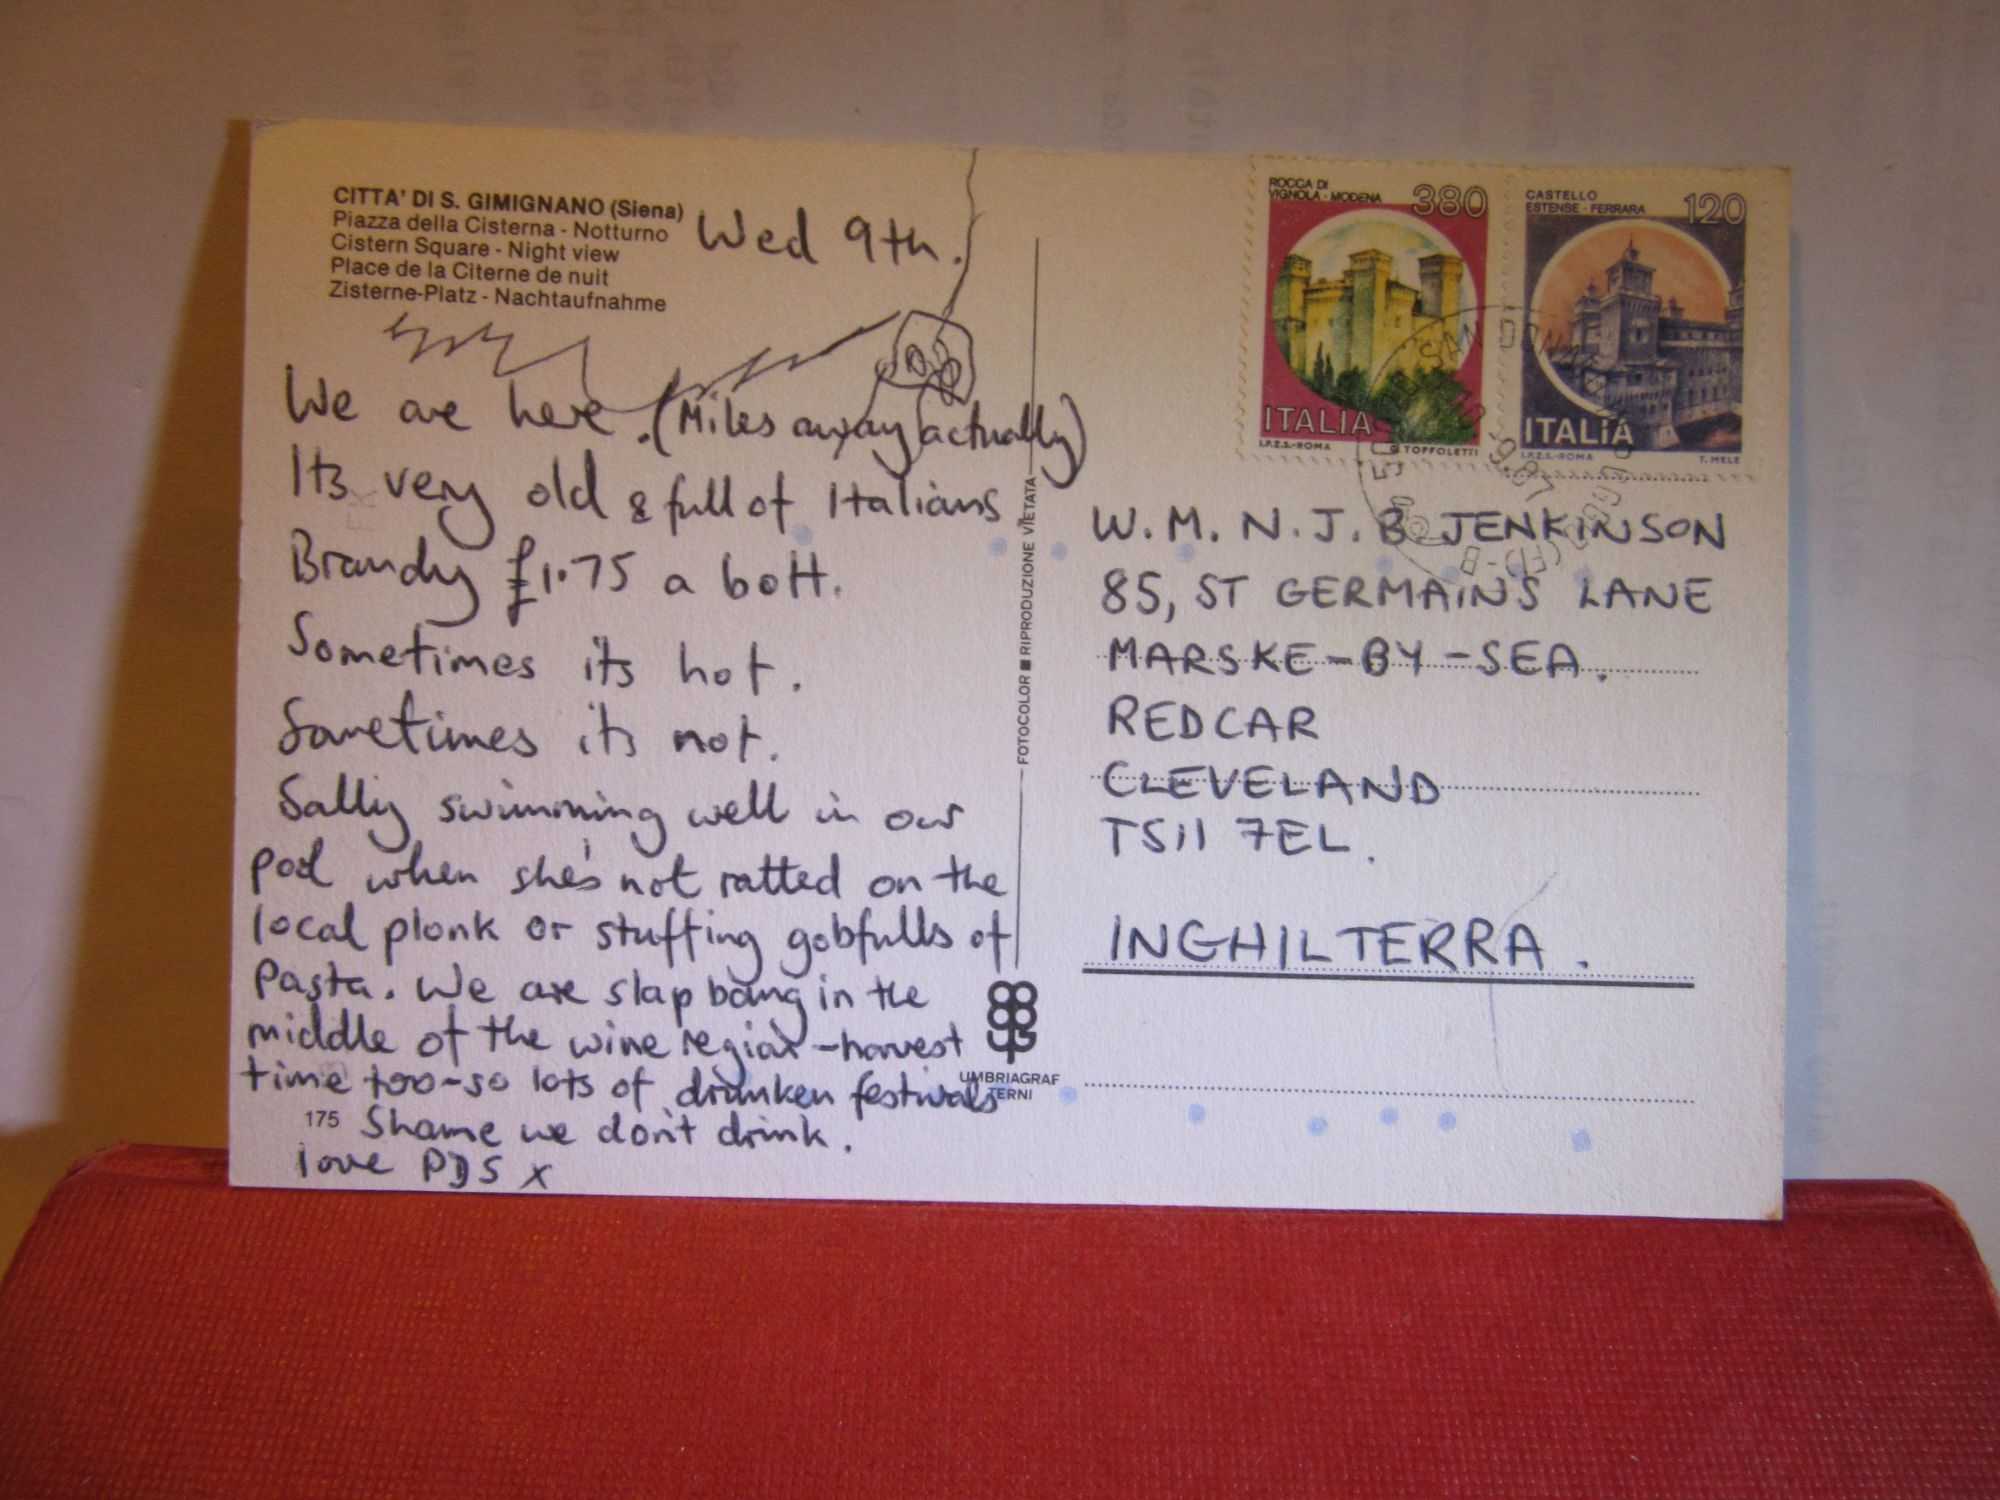 CITTA' DI S. GIMIGNANO (Siena)
Piazza della Cisterna - Notturno
Cistern Square - Night view
Place de la Citerne de nuit
Zisterne-Platz - Nachtaufnahme
Wed 9th.
We are here. (Miles away actually)
Its very old & full of Italians
Brandy £1.75 a bott.
Sometimes its hot.
Sometimes its not.
Sally swimming well in our
pool when she's not ratted on the
local plonk or stuffing gobfulls of
Pasta. We are slap bang in the
middle of the wine region - harvest
time too - so lots of drunken festivals
175 Shame we don't drink.
love PDS x
FOTOCOLOR ■ RIPRODUZIONE VIETATA
UMBRIAGRAF
TERNI
ROCCA DI
VIGNOLA - MODENA 380
ITALIA
I.P.Z.S.-ROMA G. TOFFOLETTI
CASTELLO
ESTENSE - FERRARA 120
ITALIA
I.P.Z.S.-ROMA T. MELE
W. M. N. J. B JENKINSON
85, ST GERMAINS LANE
MARSKE-BY-SEA.
REDCAR
CLEVELAND
TS11 7EL.
INGHILTERRA.